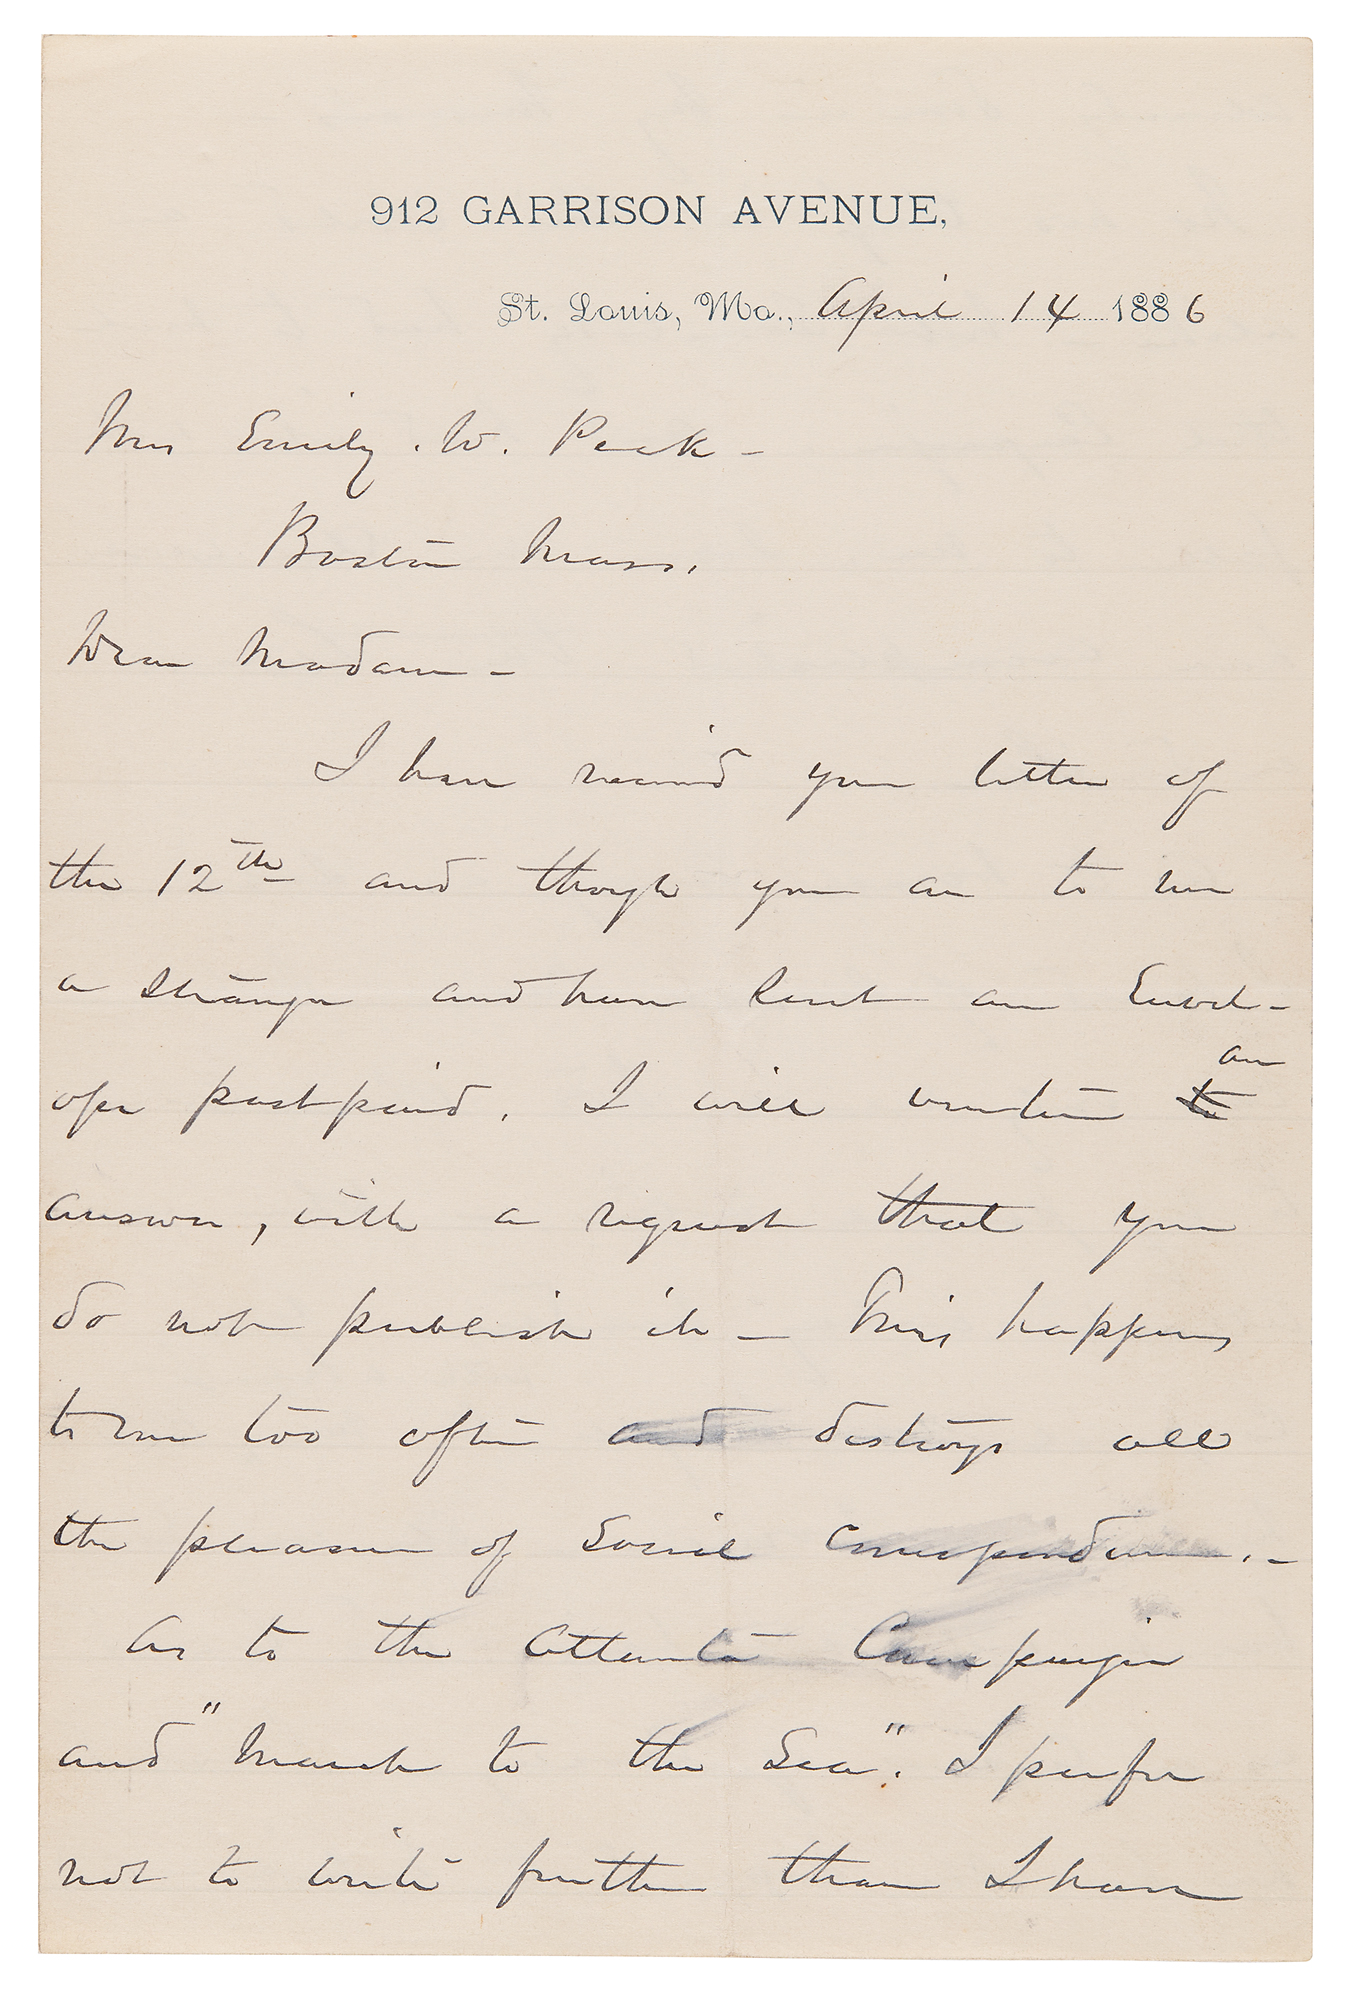 912 GARRISON AVENUE,
St. Louis, Mo., April 14 1886
Mrs Emily. W. Peck -
Boston Mass.
Dear Madam -
I have received your letter of
the 12th and though you are to me
a stranger and have sent an Envel-
ope postpaid, I will venture to an
answer, with a request that you
do not publish it - This happens
to me too often and destroys all
the pleasure of Social Correspondence. -
As to the Atlanta Campaign
and "March to the Sea". I prefer
not to write further than I have